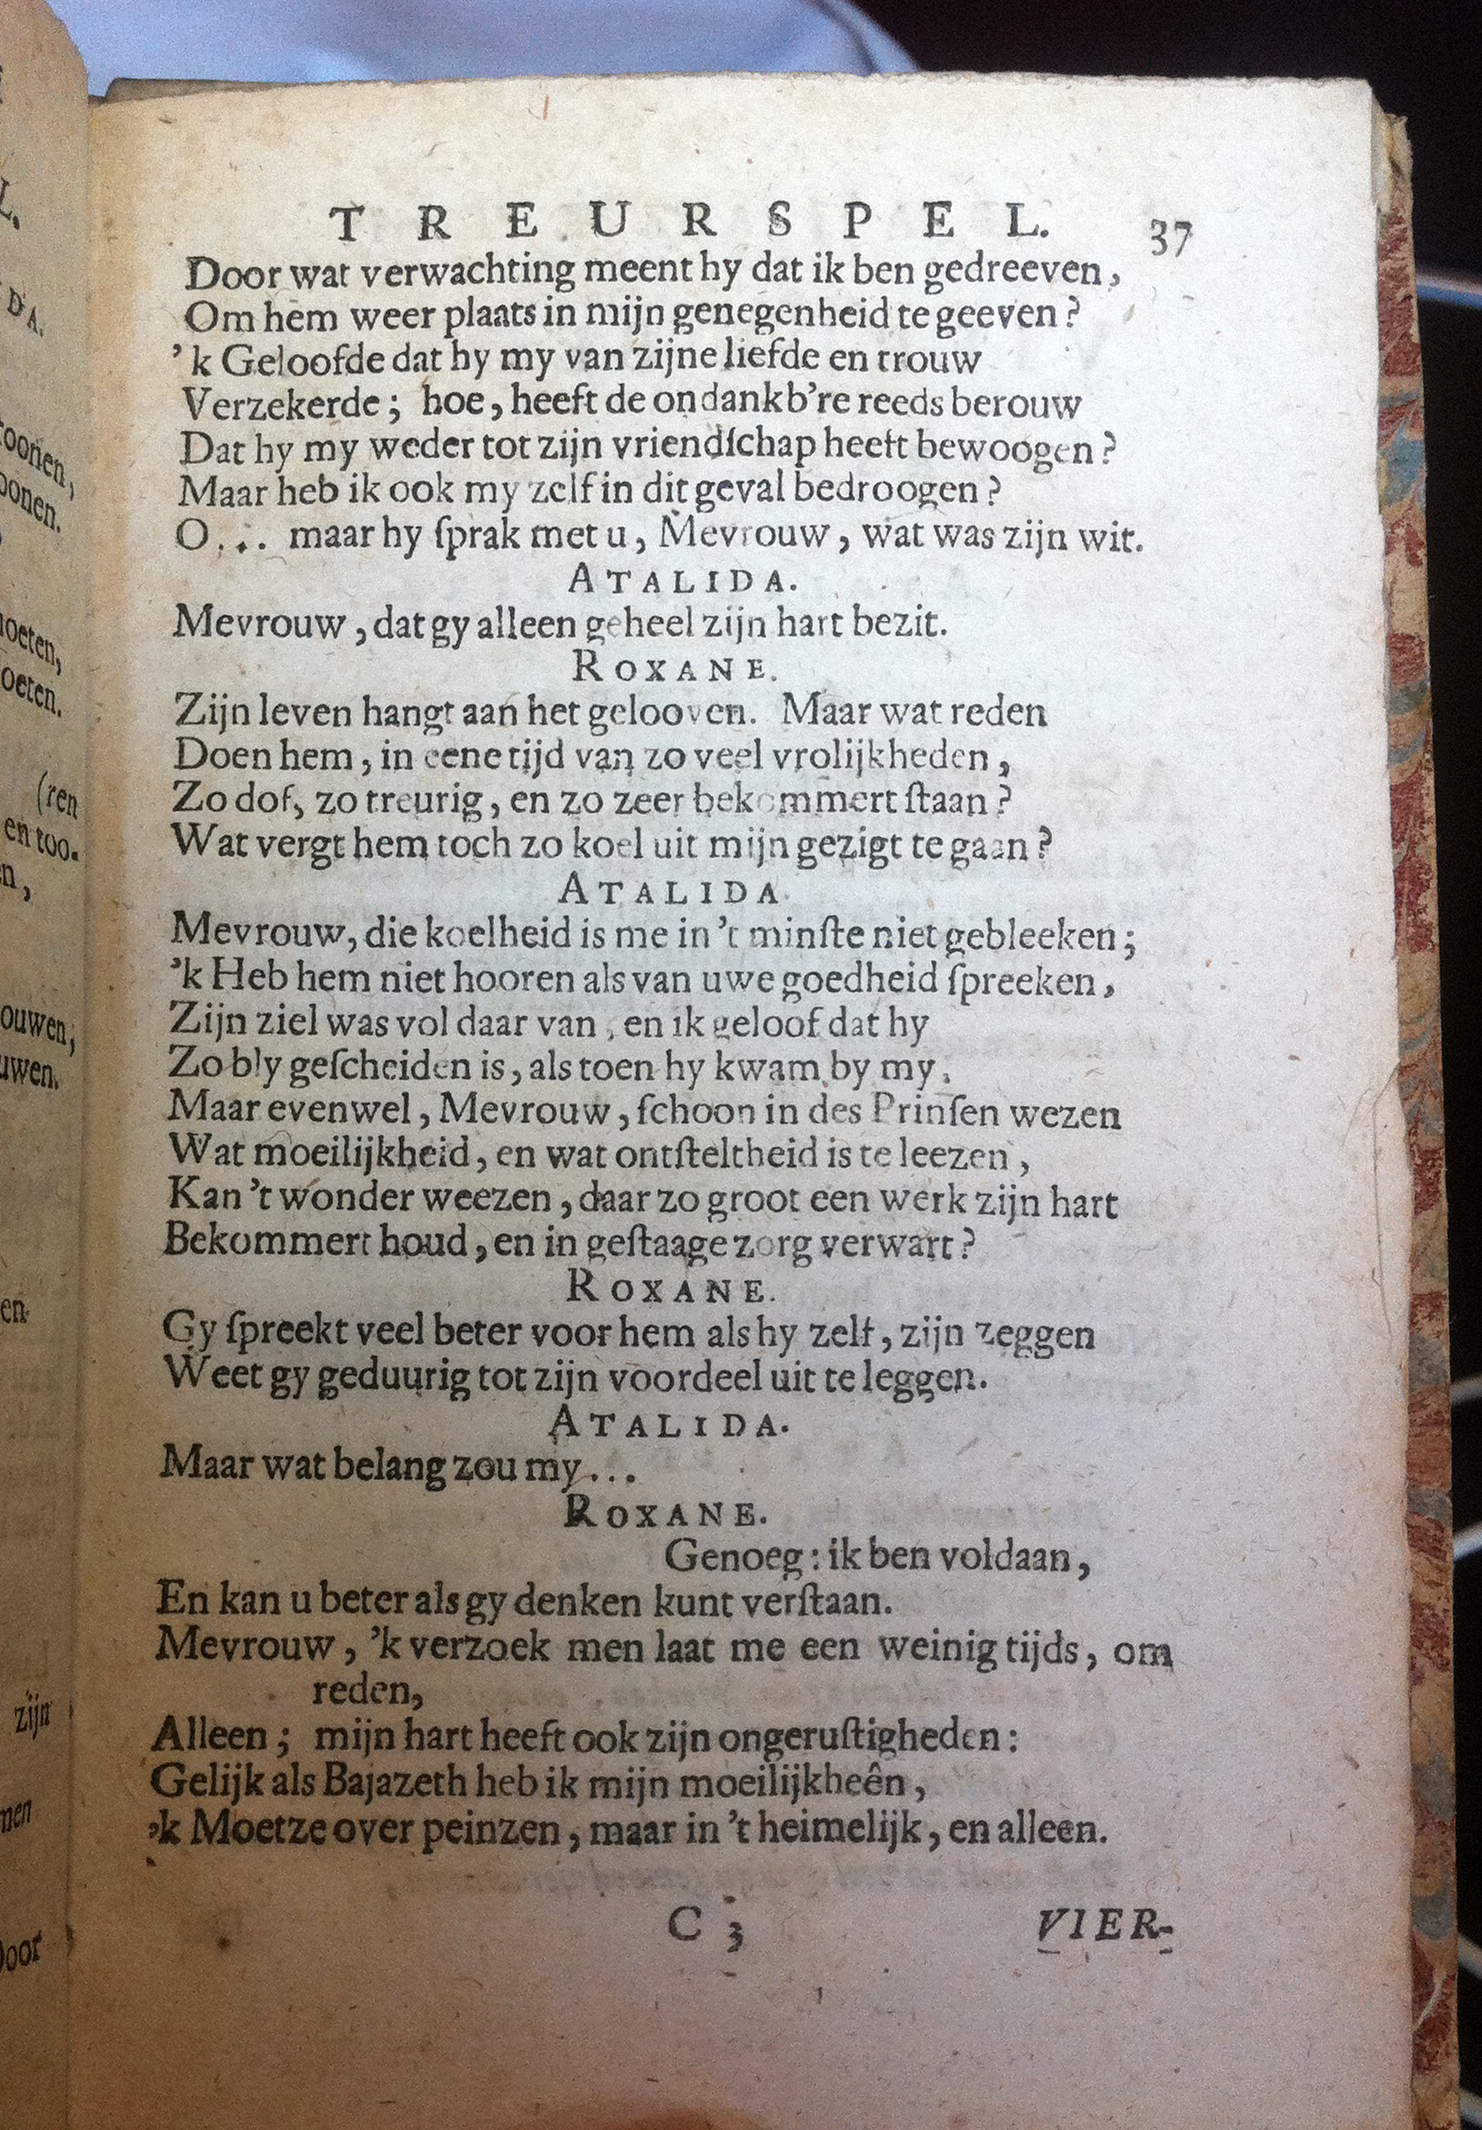 TREURSPEL. 37
Door wat verwachting meent hy dat ik ben gedreeven,
Om hem weer plaats in mijn genegenheid te geeven?
'k Geloofde dat hy my van zijne liefde en trouw
Verzekerde; hoe, heeft de ondankb're reeds berouw
Dat hy my weder tot zijn vriendſchap heeft bewoogen?
Maar heb ik ook my zelf in dit geval bedroogen?
O... maar hy ſprak met u, Mevrouw, wat was zijn wit.
ATALIDA.
Mevrouw, dat gy alleen geheel zijn hart bezit.
ROXANE.
Zijn leven hangt aan het gelooven. Maar wat reden
Doen hem, in eene tijd van zo veel vrolijkheden,
Zo dof, zo treurig, en zo zeer bekommert ſtaan?
Wat vergt hem toch zo koel uit mijn gezigt te gaan?
ATALIDA.
Mevrouw, die koelheid is me in 't minſte niet gebleeken;
'k Heb hem niet hooren als van uwe goedheid ſpreeken,
Zijn ziel was vol daar van, en ik geloof dat hy
Zo bly geſcheiden is, als toen hy kwam by my.
Maar evenwel, Mevrouw, ſchoon in des Prinſen wezen
Wat moeilijkheid, en wat ontſteltheid is te leezen,
Kan 't wonder weezen, daar zo groot een werk zijn hart
Bekommert houd, en in geſtaage zorg verwart?
ROXANE.
Gy ſpreekt veel beter voor hem als hy zelf, zijn zeggen
Weet gy geduurig tot zijn voordeel uit te leggen.
ATALIDA.
Maar wat belang zou my...
ROXANE.
Genoeg: ik ben voldaan,
En kan u beter als gy denken kunt verſtaan.
Mevrouw, 'k verzoek men laat me een weinig tijds, om
reden,
Alleen; mijn hart heeft ook zijn ongeruſtigheden:
Gelijk als Bajazeth heb ik mijn moeilijkheên,
'k Moet ze over peinzen, maar in 't heimelijk, en alleen.
C 3 VIER-